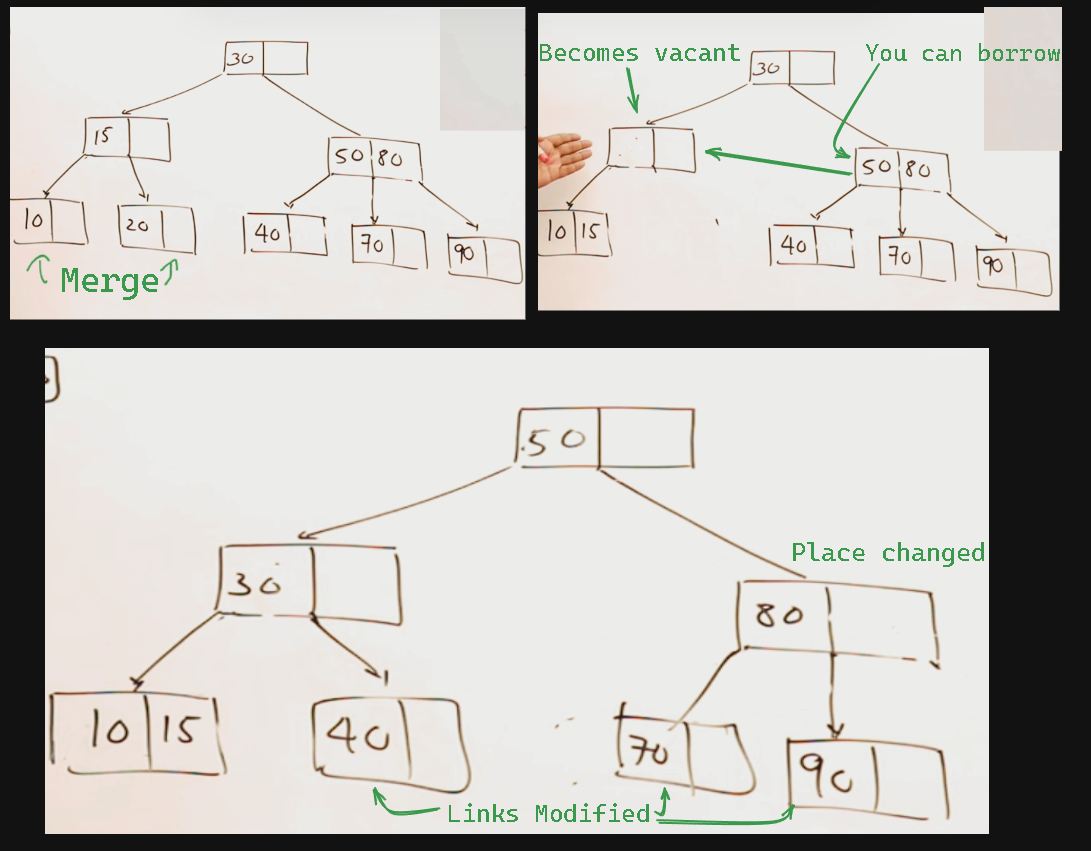 30
15
50 80
10
20
40
70
90
Merge
Becomes vacant
You can borrow
30
50 80
10 15
40
70
90
50
Place changed
30
80
10 15
40
70
90
Links Modified